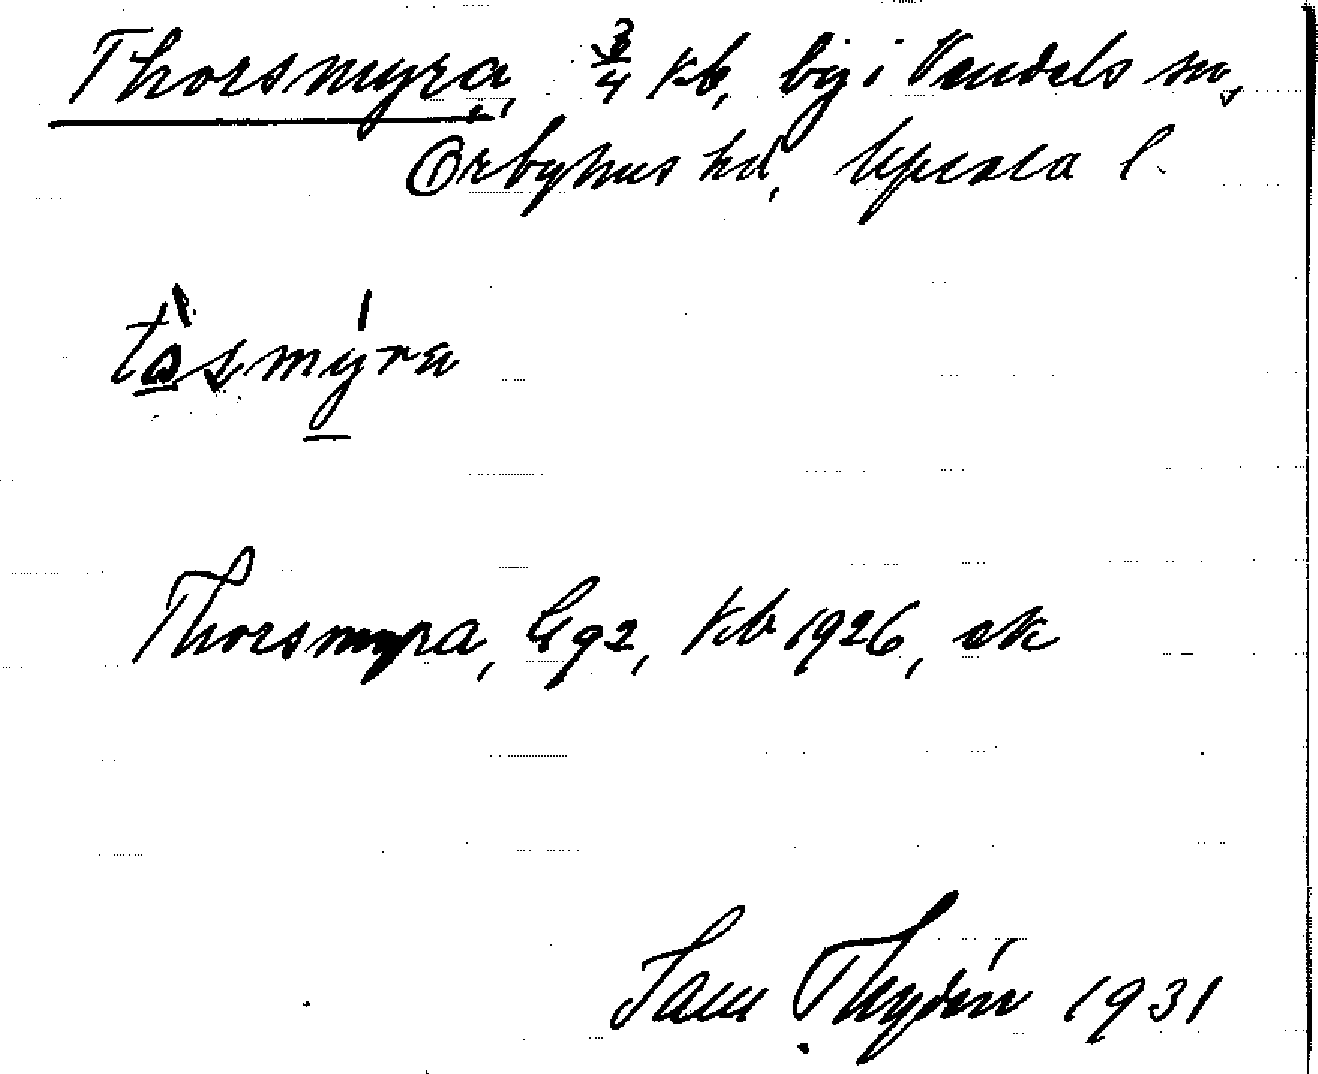 Thorsmyra, 3/4 kb, by i Vendels sn,
Örbyhus hd, Upsala l.
tåsmýra
Thorsmyra, Gg2, Kb 1926, ek
Sam Thydén 1931